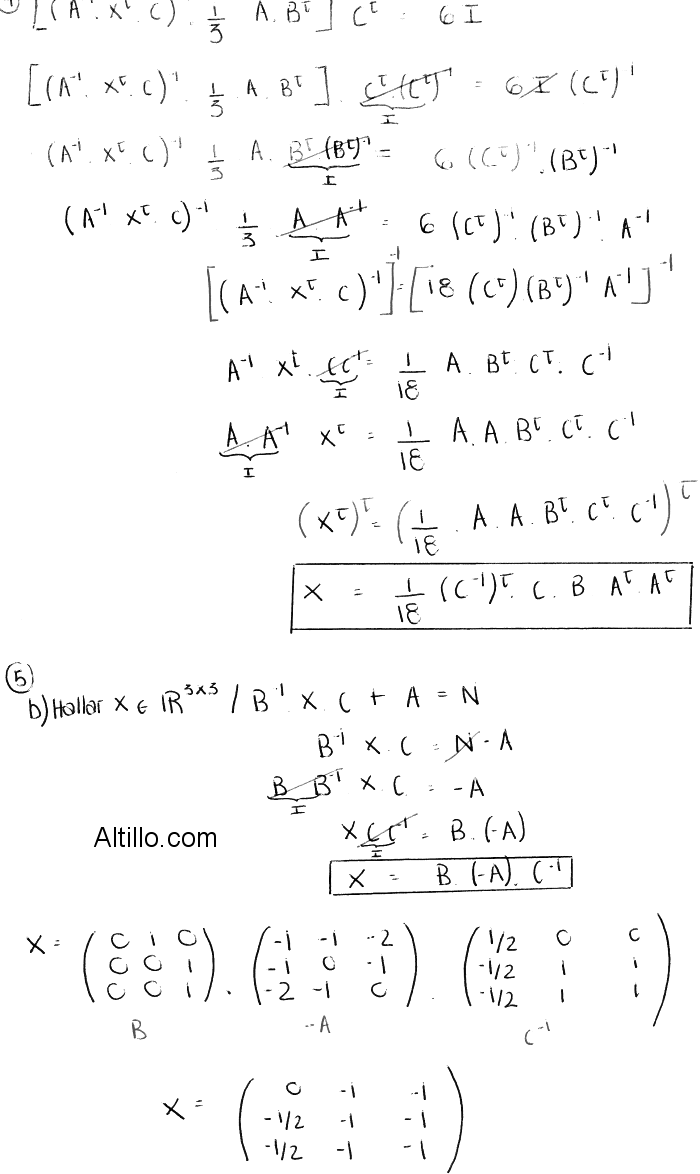 1) [(A⁻¹. Xᵗ. C)⁻¹. 1/3 A. Bᵗ] Cᵗ = 6 I
[(A⁻¹. Xᵗ. C)⁻¹. 1/3 . A. Bᵗ]. Cᵗ.(Cᵗ)⁻¹ = 6 I (Cᵗ)⁻¹
I
(A⁻¹. Xᵗ. C)⁻¹ 1/3 A. Bᵗ (Bᵗ)⁻¹ = 6 (Cᵗ)⁻¹.(Bᵗ)⁻¹
I
(A⁻¹ Xᵗ C)⁻¹ 1/3 A. A⁻¹ = 6 (Cᵗ)⁻¹. (Bᵗ)⁻¹. A⁻¹
I
[(A⁻¹. Xᵗ. C)⁻¹]⁻¹ = [18 (Cᵗ)(Bᵗ)⁻¹ A⁻¹]⁻¹
A⁻¹ Xᵗ. C C⁻¹ = 1/18 A. Bᵗ. Cᵗ. C⁻¹
I
A. A⁻¹ Xᵗ = 1/18 A. A. Bᵗ. Cᵗ. C⁻¹
I
(Xᵗ)ᵗ = (1/18 . A. A. Bᵗ. Cᵗ. C⁻¹)ᵗ
X = 1/18 (C⁻¹)ᵗ. C. B Aᵗ. Aᵗ
5
b) Hallar X ∈ ℝ³ˣ³ / B⁻¹ X. C + A = N
B⁻¹ X. C = N - A
B B⁻¹ X. C = -A
I
X C C⁻¹ = B. (-A)
I
Altillo.com
X = B. (-A). C⁻¹
X = (0 1 0) . (-1 -1 -2) . (1/2 0 0)
(0 0 1) (-1 0 -1) (-1/2 1 1)
(0 0 1) (-2 -1 0) (-1/2 1 1)
B -A C⁻¹
X = (0 -1 -1)
(-1/2 -1 -1)
(-1/2 -1 -1)